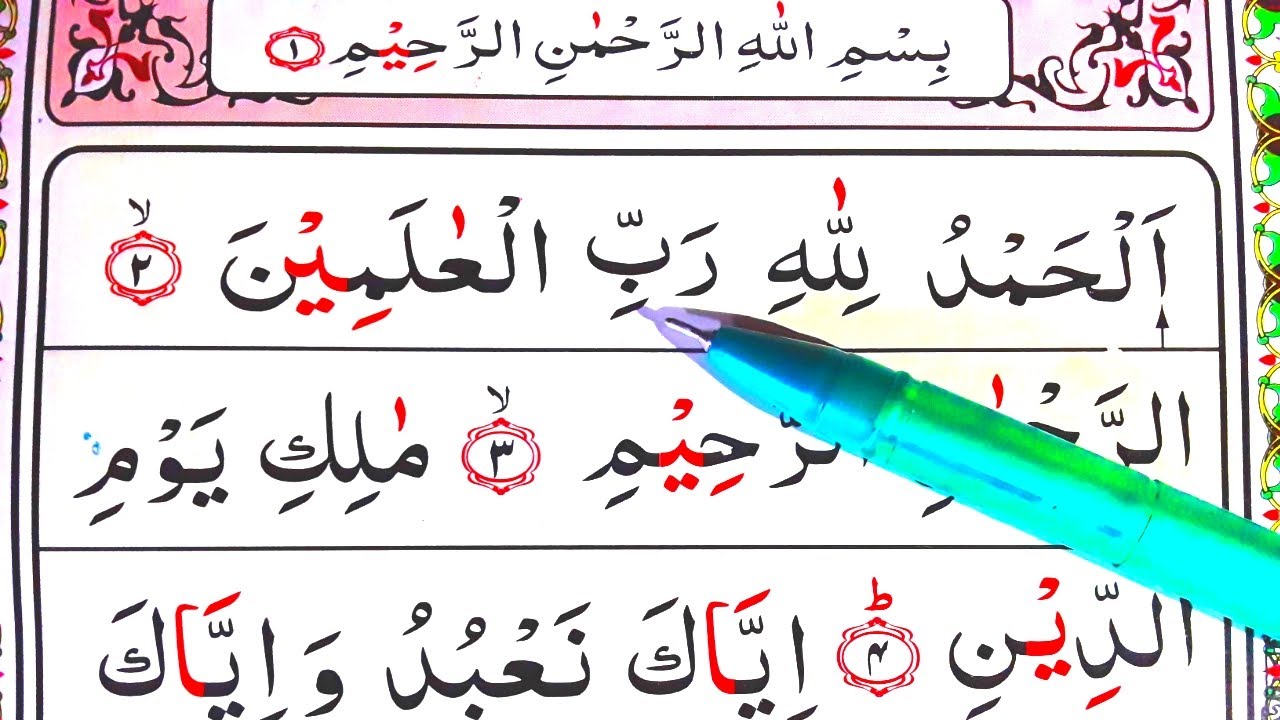 بِسْمِ اللّٰهِ الرَّحْمٰنِ الرَّحِيْمِ ۝١
اَلْحَمْدُ لِلّٰهِ رَبِّ الْعٰلَمِيْنَ ۙ۝٢
الرَّحِيْمِ ۙ۝٣ مٰلِكِ يَوْمِ
الدِّيْنِ ؕ۝۴ اِيَّاكَ نَعْبُدُ وَاِيَّاكَ